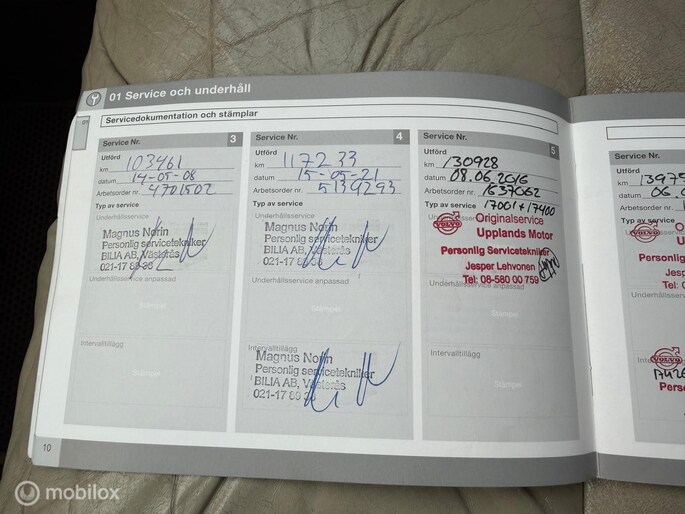 01 Service och underhåll
01
Servicedokumentation och stämplar
Service Nr. 3
Utförd
km 103461
datum 14-05-08
Arbetsorder nr. 4701502
Typ av service
Underhållsservice
Magnus Norin
Personlig servicetekniker
BILIA AB, Västerås
021-17 89 36
Underhållsservice anpassad
Stämpel
Intervalltillägg
Stämpel
Service Nr. 4
Utförd
km 117233
datum 15-05-21
Arbetsorder nr. 5139293
Typ av service
Underhållsservice
Magnus Norin
Personlig servicetekniker
BILIA AB, Västerås
021-17 89 36
Underhållsservice anpassad
Stämpel
Intervalltillägg
Magnus Norin
Personlig servicetekniker
BILIA AB, Västerås
021-17 89 36
Service Nr. 5
Utförd
km 130928
datum 08.06.2016
Arbetsorder nr. 1637062
Typ av service 17001+17400
VOLVO
Originalservice
Upplands Motor
Personlig Servicetekniker
Jesper Lehvonen
Tel: 08-580 00 759
Underhållsservice anpassad
Stämpel
Intervalltillägg
Stämpel
10
Service Nr.
Utförd
km 13975
datum 06.0
Arbetsorder nr.
Typ av service
VOLVO
Personlig
Jesp
Tel: 0
Underhållsservice
VOLVO
Perso
mobilox